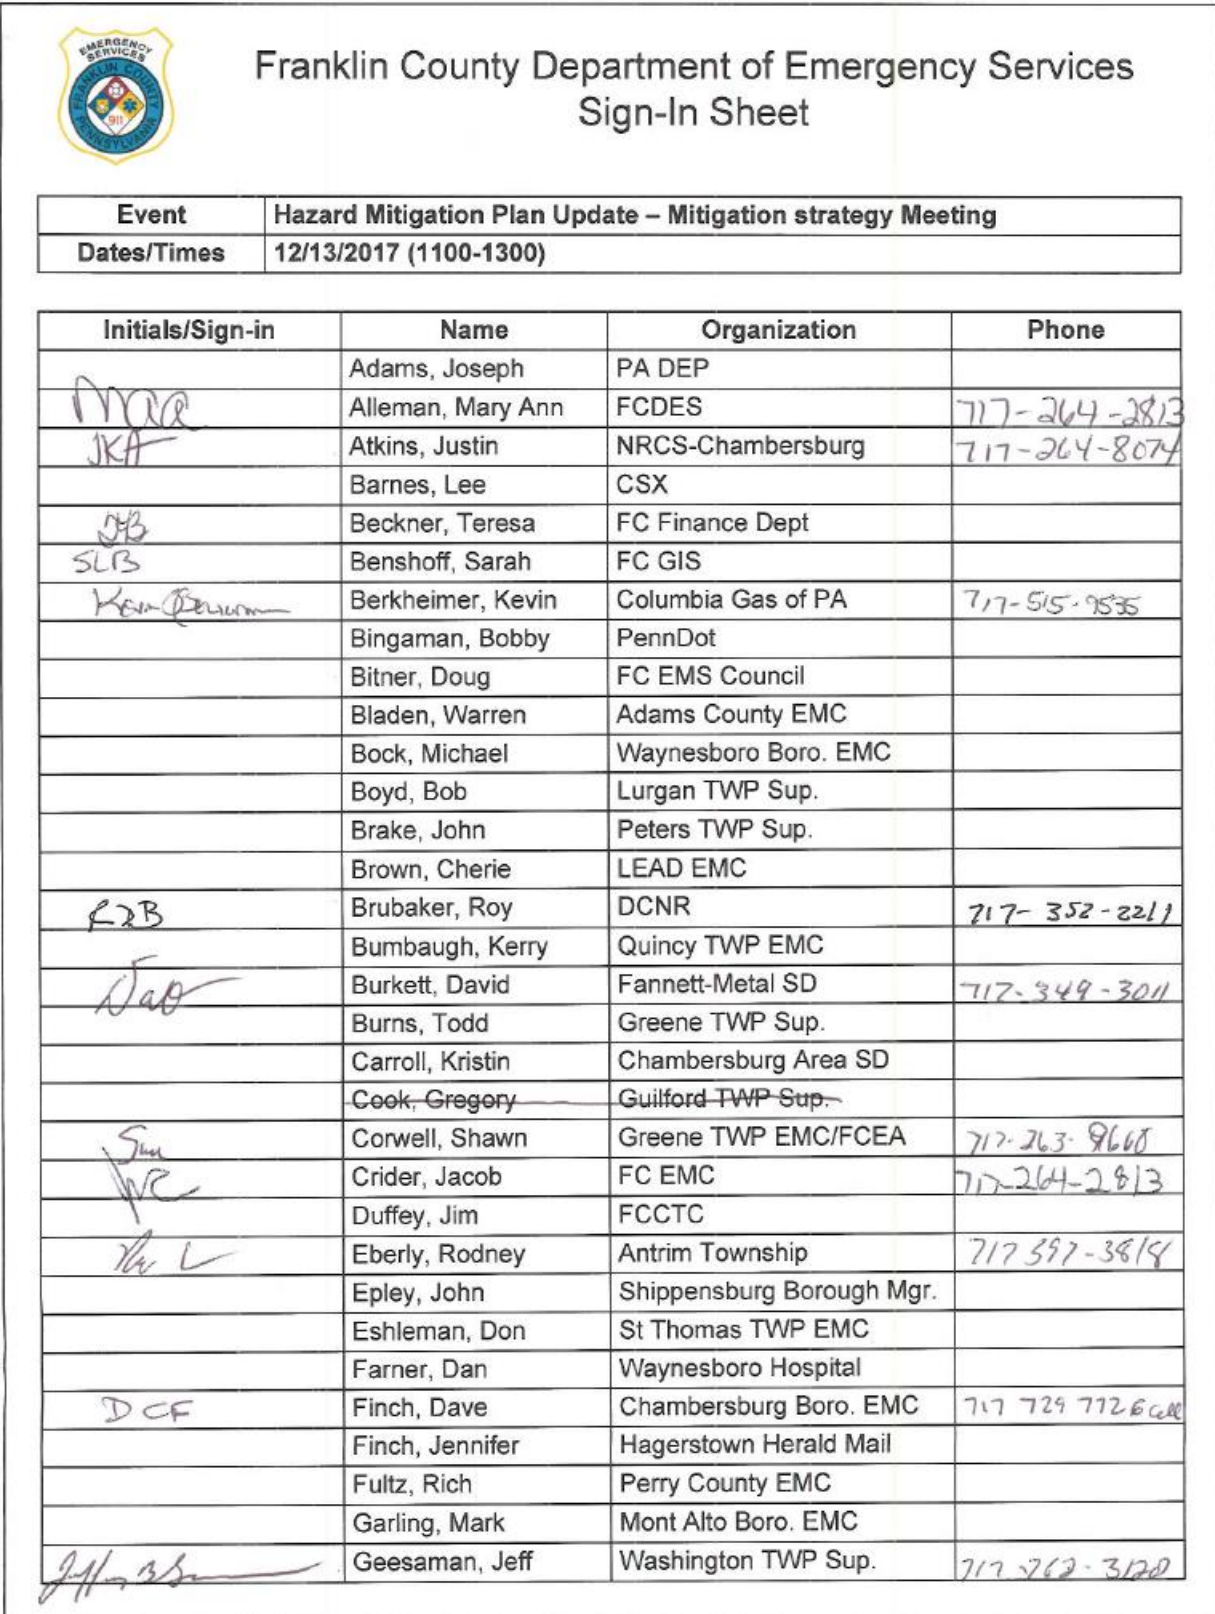 EMERGENCY
SERVICES
FRANKLIN COUNTY
911
PENNSYLVANIA
Franklin County Department of Emergency Services
Sign-In Sheet
Event Hazard Mitigation Plan Update – Mitigation strategy Meeting
Dates/Times 12/13/2017 (1100-1300)
Initials/Sign-in Name Organization Phone
Adams, Joseph PA DEP
Maa Alleman, Mary Ann FCDES 717-264-2813
JKA Atkins, Justin NRCS-Chambersburg 717-264-8074
Barnes, Lee CSX
Beckner, Teresa FC Finance Dept
SLB Benshoff, Sarah FC GIS
Kevin Berkheimer, Kevin Columbia Gas of PA 717-515-9535
Bingaman, Bobby PennDot
Bitner, Doug FC EMS Council
Bladen, Warren Adams County EMC
Bock, Michael Waynesboro Boro. EMC
Boyd, Bob Lurgan TWP Sup.
Brake, John Peters TWP Sup.
Brown, Cherie LEAD EMC
Brubaker, Roy DCNR 717-352-2211
Bumbaugh, Kerry Quincy TWP EMC
Burkett, David Fannett-Metal SD 717-349-3011
Burns, Todd Greene TWP Sup.
Carroll, Kristin Chambersburg Area SD
Cook, Gregory Guilford TWP Sup.
Corwell, Shawn Greene TWP EMC/FCEA 717-263-9660
Crider, Jacob FC EMC 717-264-2813
Duffey, Jim FCCTC
Eberly, Rodney Antrim Township
Epley, John Shippensburg Borough Mgr.
Eshleman, Don St Thomas TWP EMC
Farner, Dan Waynesboro Hospital
DCF Finch, Dave Chambersburg Boro. EMC 717 729 7726 cell
Finch, Jennifer Hagerstown Herald Mail
Fultz, Rich Perry County EMC
Garling, Mark Mont Alto Boro. EMC
Geesaman, Jeff Washington TWP Sup. 717-762-3128